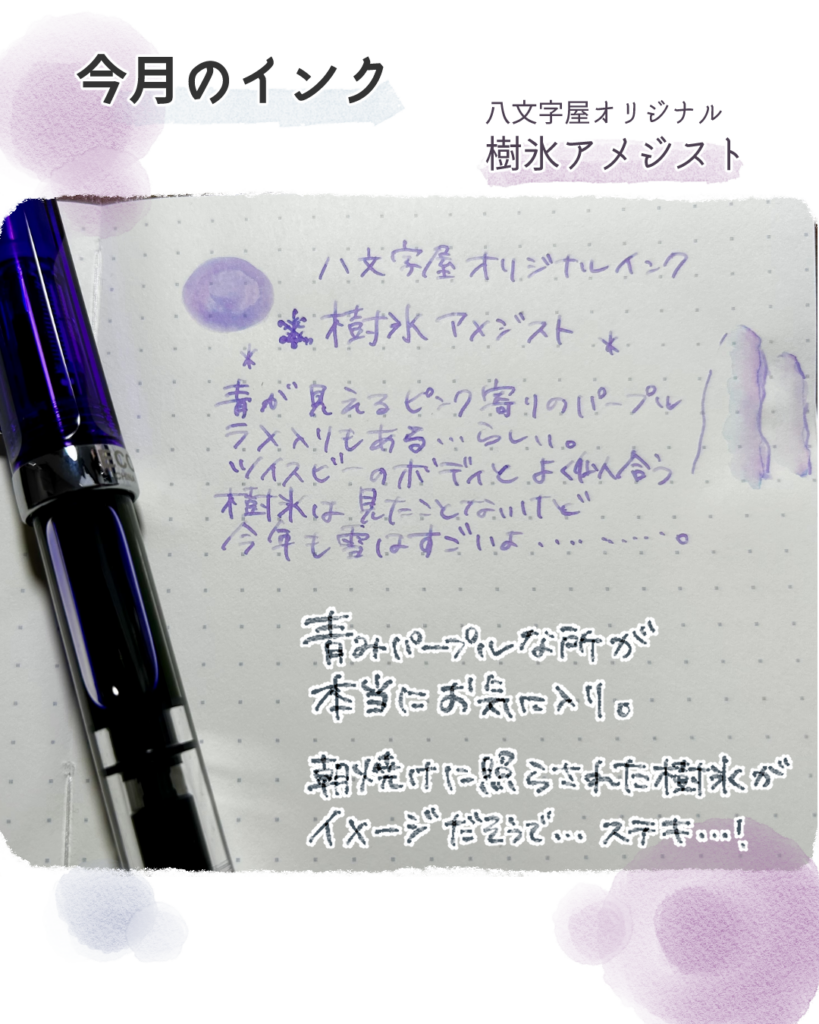 今月のインク
八文字屋オリジナル
樹氷アメジスト
八文字屋オリジナルインク
樹氷アメジスト
青が見えるピンク寄りのパープル
ラメ入りもある…らしい。
ツイスビーのボディとよく似合う
樹氷は見たことないけど
今年も雪はすごいよ………。
青みパープルな所が
本当にお気に入り。
朝焼けに照らされた樹氷が
イメージだそうで… ステキ…!